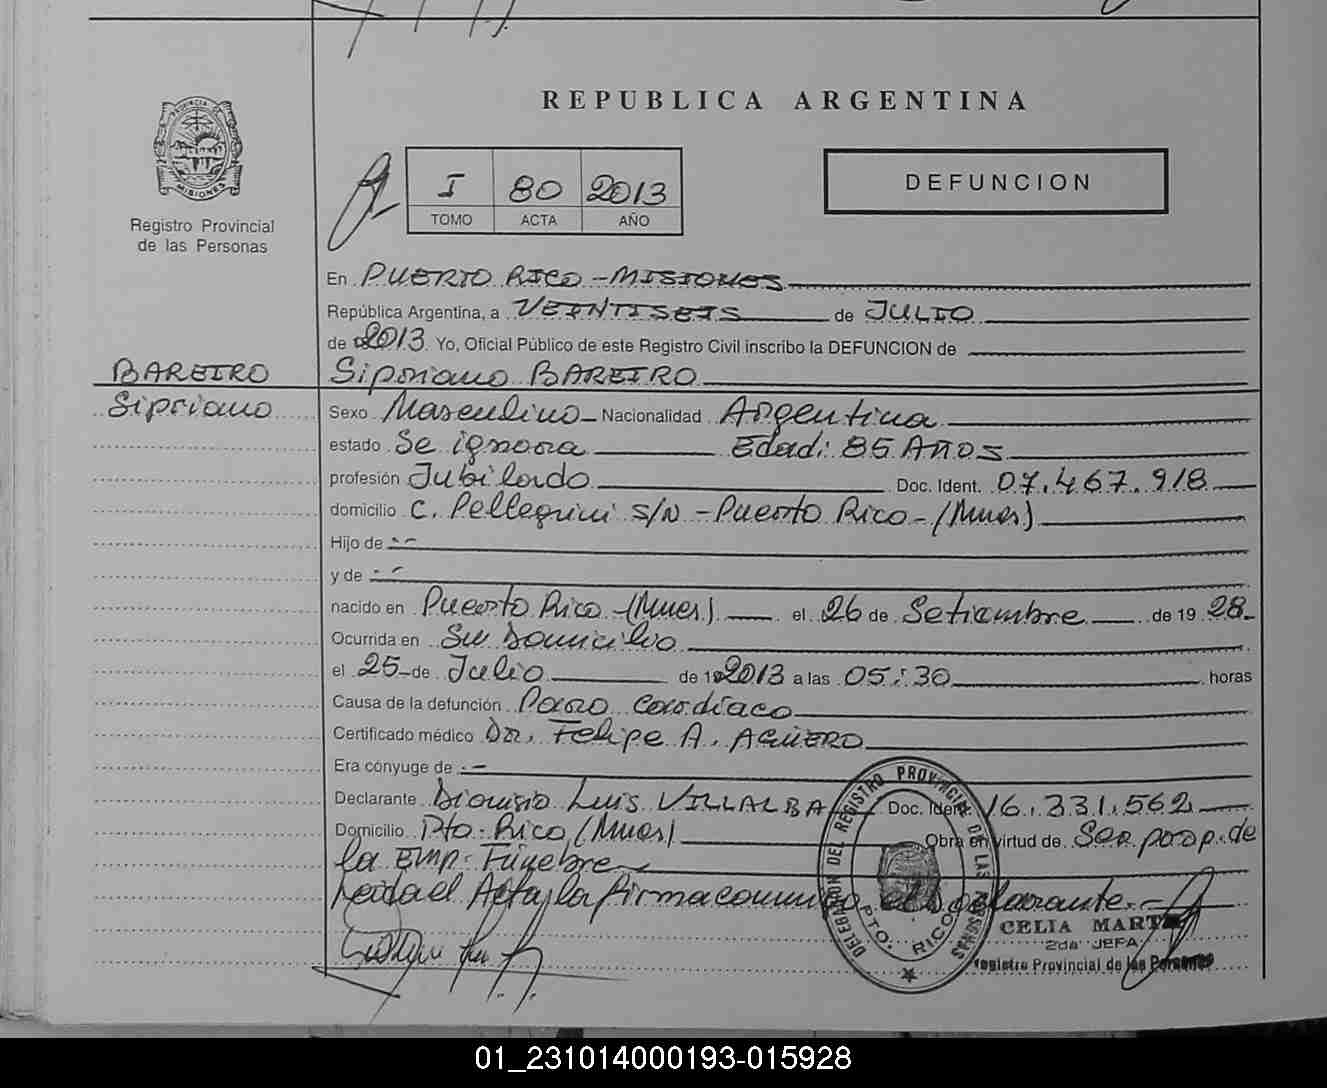 REPUBLICA ARGENTINA
PROVINCIA DE
MISIONES
Registro Provincial
de las Personas
I 80 2013
TOMO ACTA AÑO
DEFUNCION
En PUERTO RICO - MISIONES
República Argentina, a VEINTISEIS de JULIO
de 2013. Yo, Oficial Público de este Registro Civil inscribo la DEFUNCION de
BAREIRO
Sipriano BAREIRO
Sipriano
Sexo Masculino - Nacionalidad Argentina
estado Se ignora Edad: 85 AÑOS
profesión Jubilado Doc. Ident. 07.467.918
domicilio C. Pellegrini S/N - Puerto Rico - (Mnes)
Hijo de - -
y de - -
nacido en Puerto Rico - (Mnes) el 26 de Setiembre de 19 28.
Ocurrida en Su Domicilio
el 25 de Julio de 2013 a las 05:30 horas
Causa de la defunción Paro Cardiaco
Certificado médico Dr. Felipe A. AGÜERO
Era cónyuge de - -
Declarante Dionisio Luis VILLALBA Doc. Ident. 16.331.562
Domicilio Pto. Rico (Mnes) Obra en virtud de Ser prop. de
la EMP. Fúnebre
Leida el Acta, la firma conmigo el Declarante. -
DELEGACION DEL REGISTRO PROVINCIAL DE LAS PERSONAS
PTO. RICO
CELIA
2da JEFA
Registro Provincial de las Personas
01_231014000193-015928